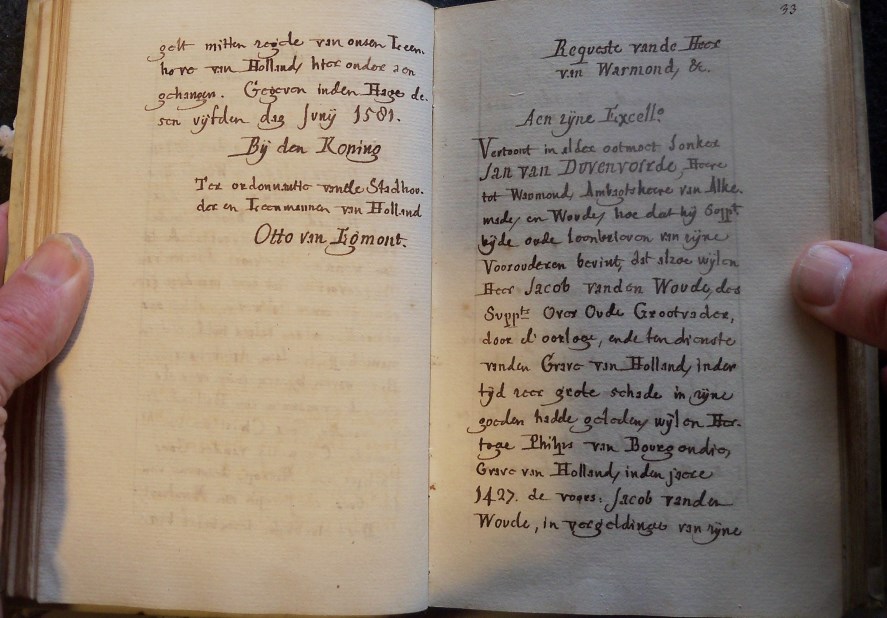 gelt mitten zegele van onsen Leen.
hove van Holland, hier onder aen
gehangen. Gegeven inden Hage de.
sen vijfden dag Junij 1581.
Bij den Koning
Ter ordonnantie vande Stadhou.
der en Leenmannen van Holland
Otto van Egmont.
33
Requeste vande Heer
van Warmond, &c.
Aen zijne Excell.
Vertoont in alder ootmoet Jonker
Jan van Duvenvoirde, Heere
tot Warmond, Ambagtsheere van Alke.
made, en Woude, hoe dat hij Suppt
bijde oude leenbrieven van zijne
Voorouderen bevint, dat alzoe wijlen
Heer Jacob vanden Woude, des
Suppts Over Oude Grootvader,
door d'oorloge, ende ten dienste
vanden Grave van Holland, inder
tijd zeer grote schade in zijne
goeden hadde geleden, wijlen Her.
toge Philips van Bourgondie,
Grave van Holland, inden jaere
1427. de voors: Jacob vanden
Woude, in vergeldinge van zijne